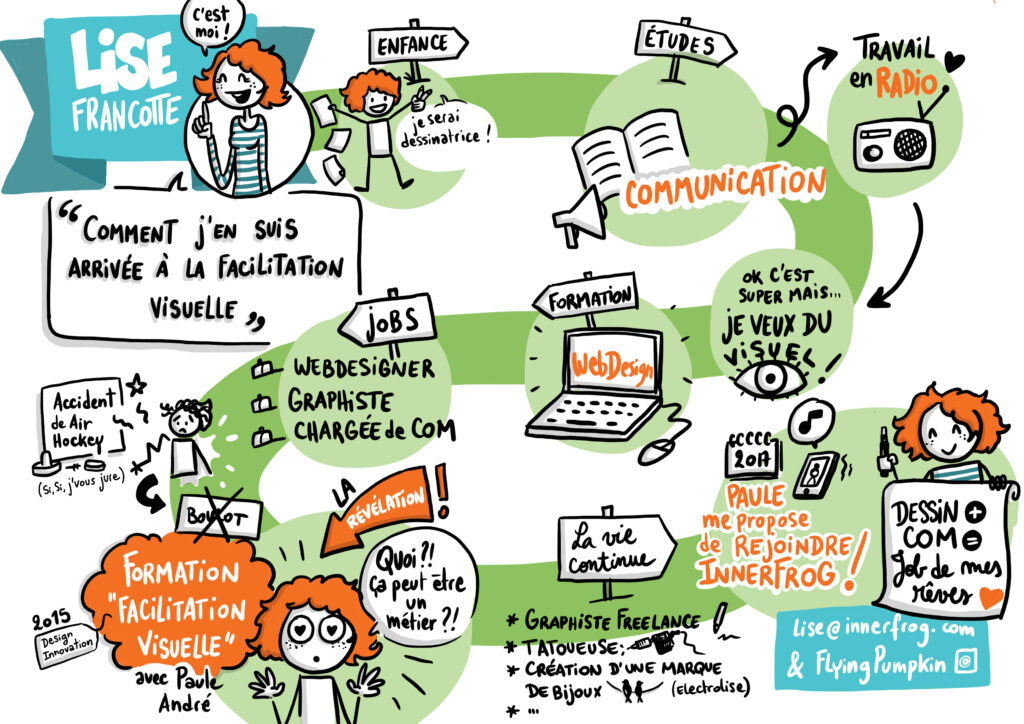 LiSE
FRANCOTTE
C'est
moi !
ENFANCE
je serai
dessinatrice !
ÉTUDES
COMMUNICATION
TRAVAIL
en RADIO
“COMMENT J'EN SUIS
ARRIVÉE À LA FACILITATION
VISUELLE”
OK C'EST
SUPER MAIS...
JE VEUX DU
ViSUEL !
FORMATION
WebDesign
JOBS
WEBDESIGNER
GRAPHiSTE
CHARGÉE de COM
Accident
de Air
Hockey
(Si, Si, j'vous jure)
BOULOT
LA
RÉVÉLATION !
FORMATION
"FACILITATION
VISUELLE"
avec Paule
André
2015
Design
Innovation
Quoi ?!
Ça peut être
un
métier ?!
La vie
continue
* GRAPHISTE FREELANCE
* TATOUEUSE
* CRÉATION D'UNE MARQUE
DE BIJOUX (Electralise)
* ...
2017
PAULE
me propose
de REJOINDRE
INNERFROG !
DESSiN +
COM =
Job de mes
rêves
lise@innerfrog.com
& FlyingPumpkin